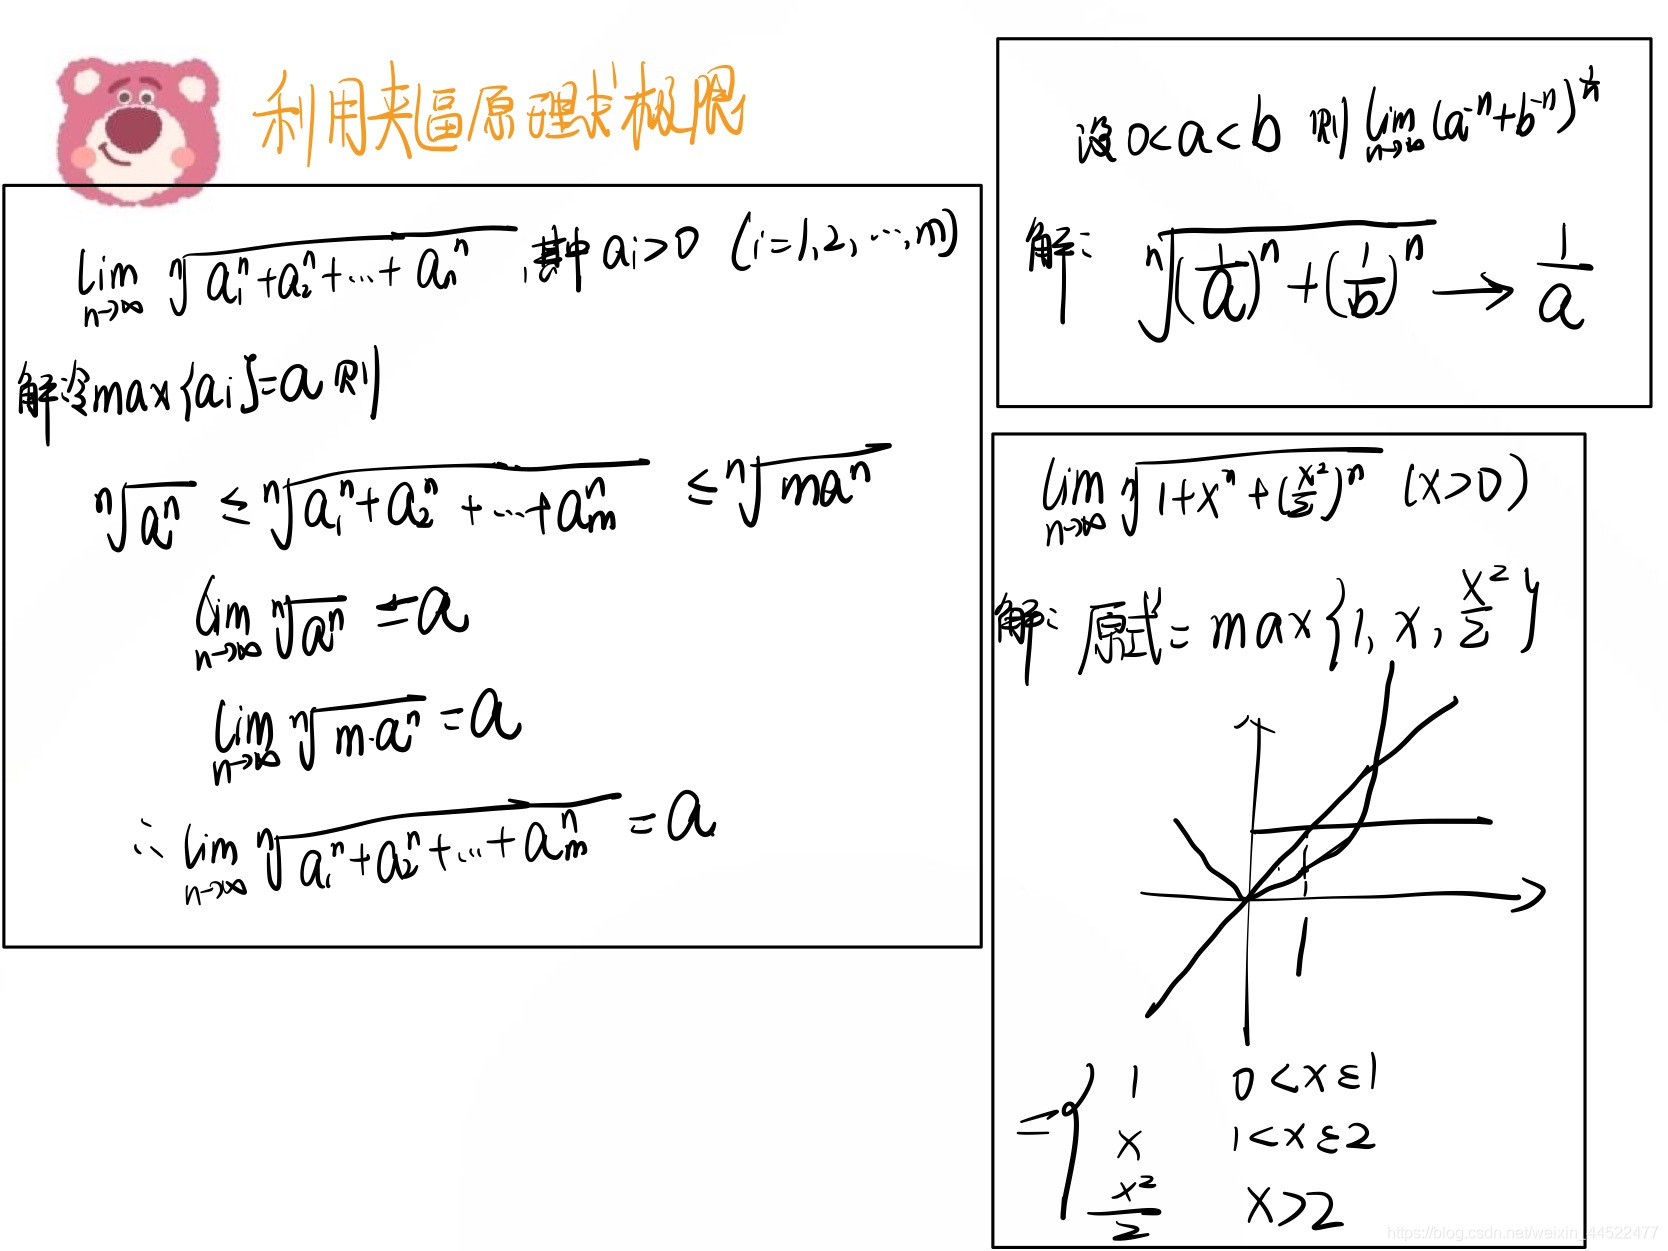 利用夹逼原理求极限
lim n→∞ ⁿ√(a₁ⁿ+a₂ⁿ+…+aₙⁿ) ,其中 aᵢ>0 (i=1,2,…,m)
解:令max{aᵢ}=a 则
ⁿ√(aⁿ) ≤ ⁿ√(a₁ⁿ+a₂ⁿ+…+aₘⁿ) ≤ ⁿ√(maⁿ)
lim n→∞ ⁿ√(aⁿ) = a
lim n→∞ ⁿ√(m·aⁿ) = a
∴ lim n→∞ ⁿ√(a₁ⁿ+a₂ⁿ+…+aₘⁿ) = a
设 0<a<b 则 lim n→∞ (a⁻ⁿ+b⁻ⁿ)^(1/n)
解: ⁿ√((1/a)ⁿ+(1/b)ⁿ) → 1/a
lim n→∞ ⁿ√(1+xⁿ+(x²/2)ⁿ) (x>0)
解: 原式= max{1, x, x²/2}
1
= { 1 0<x≤1
x 1<x≤2
x²/2 x>2
https://blog.csdn.net/weixin_44522477